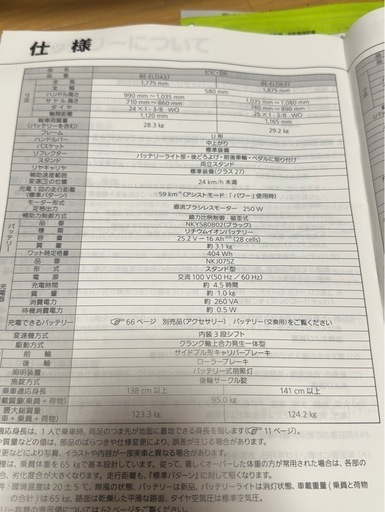 仕様
品名
品番 BE-ELD437 BE-ELD637
全長 1,775 mm 1,875 mm
全幅 580 mm
ハンドル高さ 990 mm～1,035 mm 1,035 mm～1,080 mm
サドル高さ 710 mm～860 mm 740 mm～890 mm
タイヤ 24×1・3/8 WO 26×1・3/8 WO
軸間距離 1,120 mm 1,165 mm
総車両質量(バッテリーを含む) 28.3 kg 29.2 kg
フレーム U形
ハンドルバー 中上がり
バスケット 標準装備
リフレクター バッテリーライト部・後どろよけ・前後車輪・ペダルに取り付け
スタンド 両立スタンド
リヤキャリヤ 標準装備(クラス27)
補助速度範囲 24 km/h 未満
変速の位置
充電1回の走行距離(標準パターン) 59 km(アシストモード：「パワー」使用時)
モーター形式 直流ブラシレスモーター 250 W
定格出力
補助力制御方式 踏力比例制御・磁歪式
バッテリー
品番 NKY580B02(ブラック)
種類 リチウムイオンバッテリー
容量 25.2 V－16 Ah (28 cells)
質量 約 3.1 kg
ワット時定格量 404 Wh
充電器
品番 NKJ075Z
形式 スタンド型
電源 交流 100 V(50 Hz／60 Hz)
充電時間 約 4.5 時間
質量 約 1.0 kg
消費電力 約 260 VA
待機消費電力 約 0.5 W
充電できるバッテリー ☞66ページ 別売品(アクセサリー) バッテリー(交換用)をご覧ください
変速機方式 内装3段シフト
駆動方式 クランク軸上合力発生一体型
前輪 サイドプル形キャリパーブレーキ
後輪 ローラーブレーキ
照明装置 バッテリー式前照灯
施錠方式 後輪サークル錠
乗車適応身長 138 cm 以上 141 cm 以上
積載質量(乗員＋荷物) 95.0 kg
最大総質量
(車＋乗員＋荷物) 123.3 kg 124.2 kg
適応身長は、1人で乗車時、両足のつま先が地面に着地できる身長を指します(☞11ページ)。
や質量などの値は、部品のばらつきや仕様変更により、誤差が生じる場合があります。
更などにより、写真、イラストや内容が一部実車と異なる場合があります。
は、乗員体重を65 kgで基本設計しています。従って、著しくオーバーした体重の方が常用された場合は、各部の
合、劣化度合が大きくなります。走行距離も、「標準パターン」に対して短くなります。
件：環境温度は20±5℃、無風の状態、バッテリーは新品、バッテリーライトは消灯状態、車載重量(乗員と荷物
の合計)は65 kg、路面は乾燥した平滑な路面、タイヤ空気圧は標準空気圧。